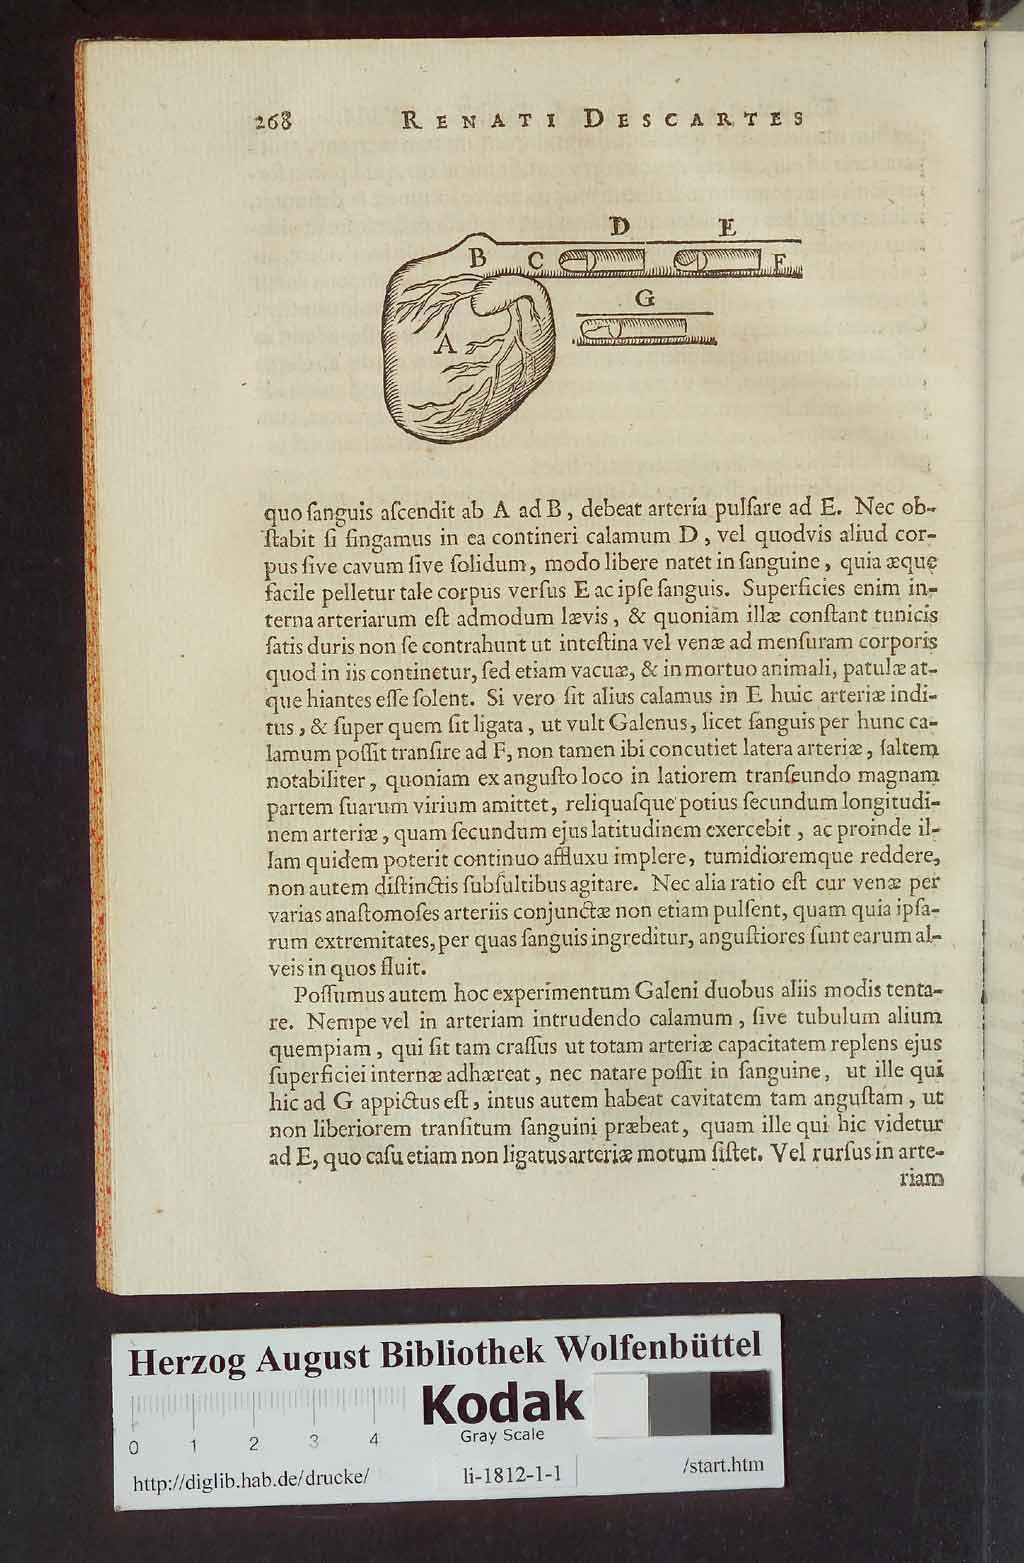 268 RENATI DESCARTES
D E
B C F
G
A
quo ſanguis aſcendit ab A ad B, debeat arteria pulſare ad E. Nec ob-
ſtabit ſi fingamus in ea contineri calamum D, vel quodvis aliud cor-
pus ſive cavum ſive ſolidum, modo libere natet in ſanguine, quia æque
facile pelletur tale corpus verſus E ac ipſe ſanguis. Superficies enim in-
terna arteriarum eſt admodum lævis, & quoniam illæ conſtant tunicis
ſatis duris non ſe contrahunt ut inteſtina vel venæ ad menſuram corporis
quod in iis continetur, ſed etiam vacuæ, & in mortuo animali, patulæ at-
que hiantes eſſe ſolent. Si vero ſit alius calamus in E huic arteriæ indi-
tus, & ſuper quem ſit ligata, ut vult Galenus, licet ſanguis per hunc ca-
lamum poſſit tranſire ad F, non tamen ibi concutiet latera arteriæ, ſaltem
notabiliter, quoniam ex anguſto loco in latiorem tranſeundo magnam
partem ſuarum virium amittet, reliquaſque potius ſecundum longitudi-
nem arteriæ, quam ſecundum ejus latitudinem exercebit, ac proinde il-
lam quidem poterit continuo affluxu implere, tumidioremque reddere,
non autem diſtinctis ſubſultibus agitare. Nec alia ratio eſt cur venæ per
varias anaſtomoſes arteriis conjunctæ non etiam pulſent, quam quia ipſa-
rum extremitates, per quas ſanguis ingreditur, anguſtiores ſunt earum al-
veis in quos fluit.
Poſſumus autem hoc experimentum Galeni duobus aliis modis tenta-
re. Nempe vel in arteriam intrudendo calamum, ſive tubulum alium
quempiam, qui ſit tam craſſus ut totam arteriæ capacitatem replens ejus
ſuperficiei internæ adhæreat, nec natare poſſit in ſanguine, ut ille qui
hic ad G appictus eſt, intus autem habeat cavitatem tam anguſtam, ut
non liberiorem tranſitum ſanguini præbeat, quam ille qui hic videtur
ad E, quo caſu etiam non ligatus arteriæ motum ſiſtet. Vel rurſus in arte-
riam
Herzog August Bibliothek Wolfenbüttel
Kodak
Gray Scale
0 1 2 3 4
http://diglib.hab.de/drucke/ li-1812-1-1 /start.htm